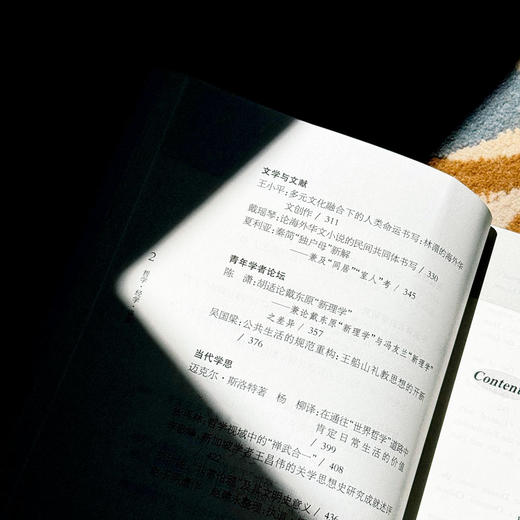 文学与文献
王小平：多元文化融合下的人类命运书写：林湄的海外华
文创作 / 311
戴瑶琴：论海外华文小说的民间共同体书写 / 330
夏利亚：秦简“独户母”新解
——兼及“同居”“室人”考 / 345
青年学者论坛
陈 潇：胡适论戴东原“新理学”
——兼论戴东原“新理学”与冯友兰“新理学”
之差异 / 357
吴国梁：公共生活的规范重构：王船山礼教思想的开新
/ 376
当代学思
迈克尔·斯洛特著 杨 柳译：在通往“世界哲学”道路中
肯定日常生活的价值
/ 399
哲学视域中的“禅武合一” / 408
新加坡学者王昌伟的关学思想史研究成就述评
及其文明史意义 / 436
2
哲学·经学
Conten